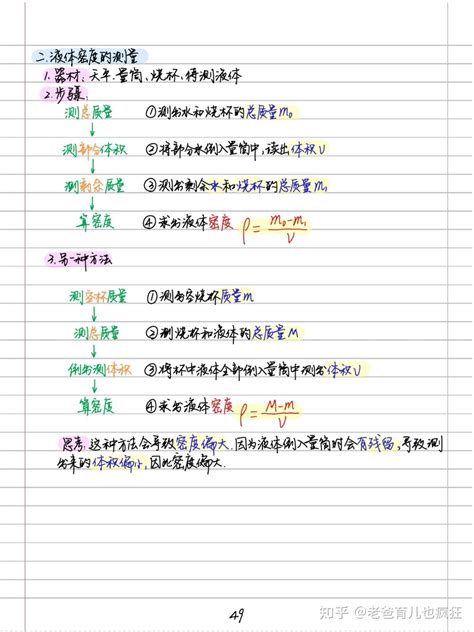 二.液体密度的测量
1.器材:天平.量筒,烧杯,待测液体
2.步骤:
测总质量 ①测出水和烧杯的总质量m₀
测部分体积 ②将部分水倒入量筒中,读出体积V
测剩余质量 ③测出剩余水和烧杯的总质量m₁
算密度 ④求出液体密度 ρ=(m₀-m₁)/V
3.另一种方法
测空杯质量 ①测出空烧杯质量m
测总质量 ②测烧杯和液体的总质量M
倒出测体积 ③将杯中液体全部倒入量筒中测出体积V
算密度 ④求出液体密度 ρ=(M-m)/V
思考:这种方法会导致密度偏大.因为液体倒入量筒时会有残留,导致测
出来的体积偏小,因此密度偏大.
49
知乎 @老爸育儿也疯狂